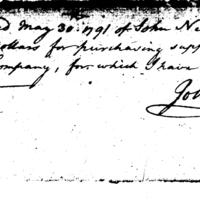 d. May 30: 1791 of John Ne
ollars for purchasing supp
ompany, for which I have
Jo